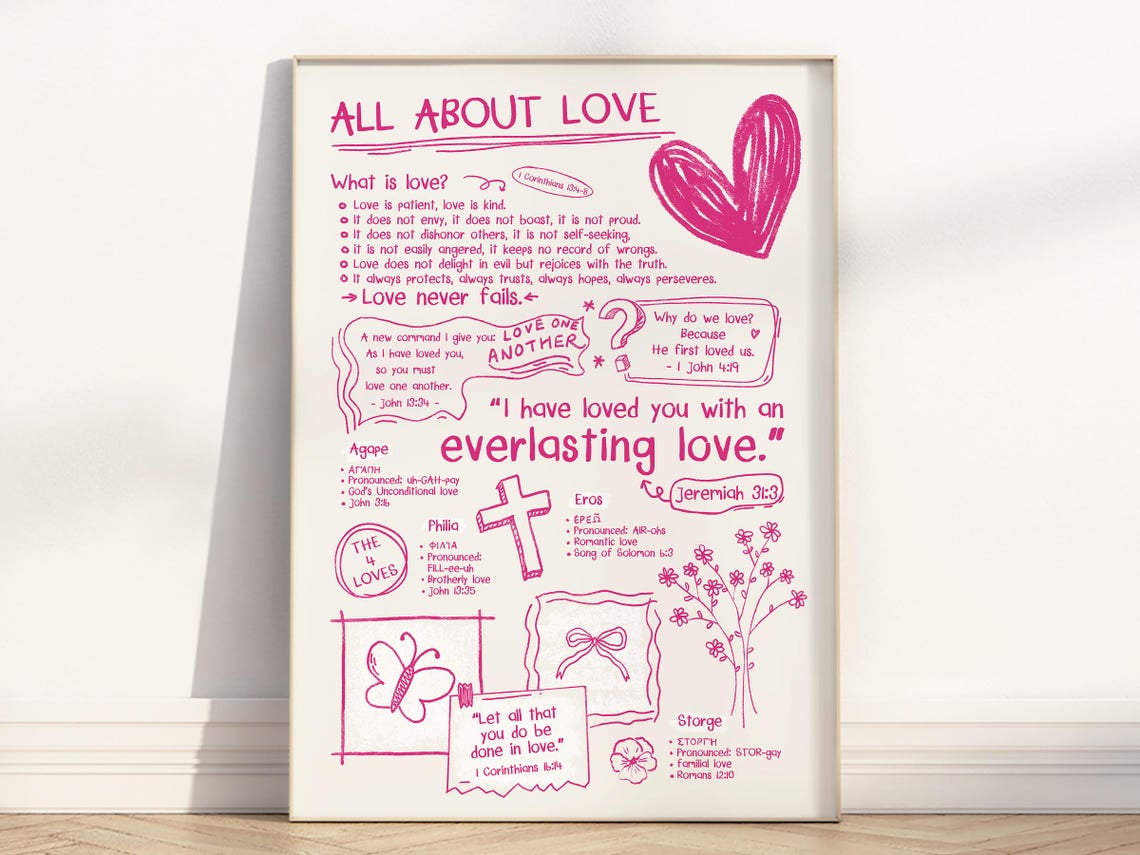 ALL ABOUT LOVE
What is love?
1 Corinthians 13:4-8
Love is patient, love is kind.
It does not envy, it does not boast, it is not proud.
It does not dishonor others, it is not self-seeking,
it is not easily angered, it keeps no record of wrongs.
Love does not delight in evil but rejoices with the truth.
It always protects, always trusts, always hopes, always perseveres.
→ Love never fails. ←
A new command I give you:
As I have loved you,
so you must
love one another.
- John 13:34 -
LOVE ONE
ANOTHER
* ? *
Why do we love?
Because
He first loved us.
- 1 John 4:19
"I have loved you with an
everlasting love."
Jeremiah 31:3
Agape
• ΑΓΆΠΗ
• Pronounced: uh-GAH-pay
• God's Unconditional love
• John 3:16
THE
4
LOVES
Philia
• ΦΙΛΊΑ
• Pronounced:
FILL-ee-uh
• Brotherly love
• John 13:35
Eros
• Pronounced: AIR-ohs
• Romantic love
• Song of Solomon 6:3
"Let all that
you do be
done in love."
- 1 Corinthians 16:14
Storge
• ΣΤΟΡΓΉ
• Pronounced: STOR-gay
• familial love
• Romans 12:10